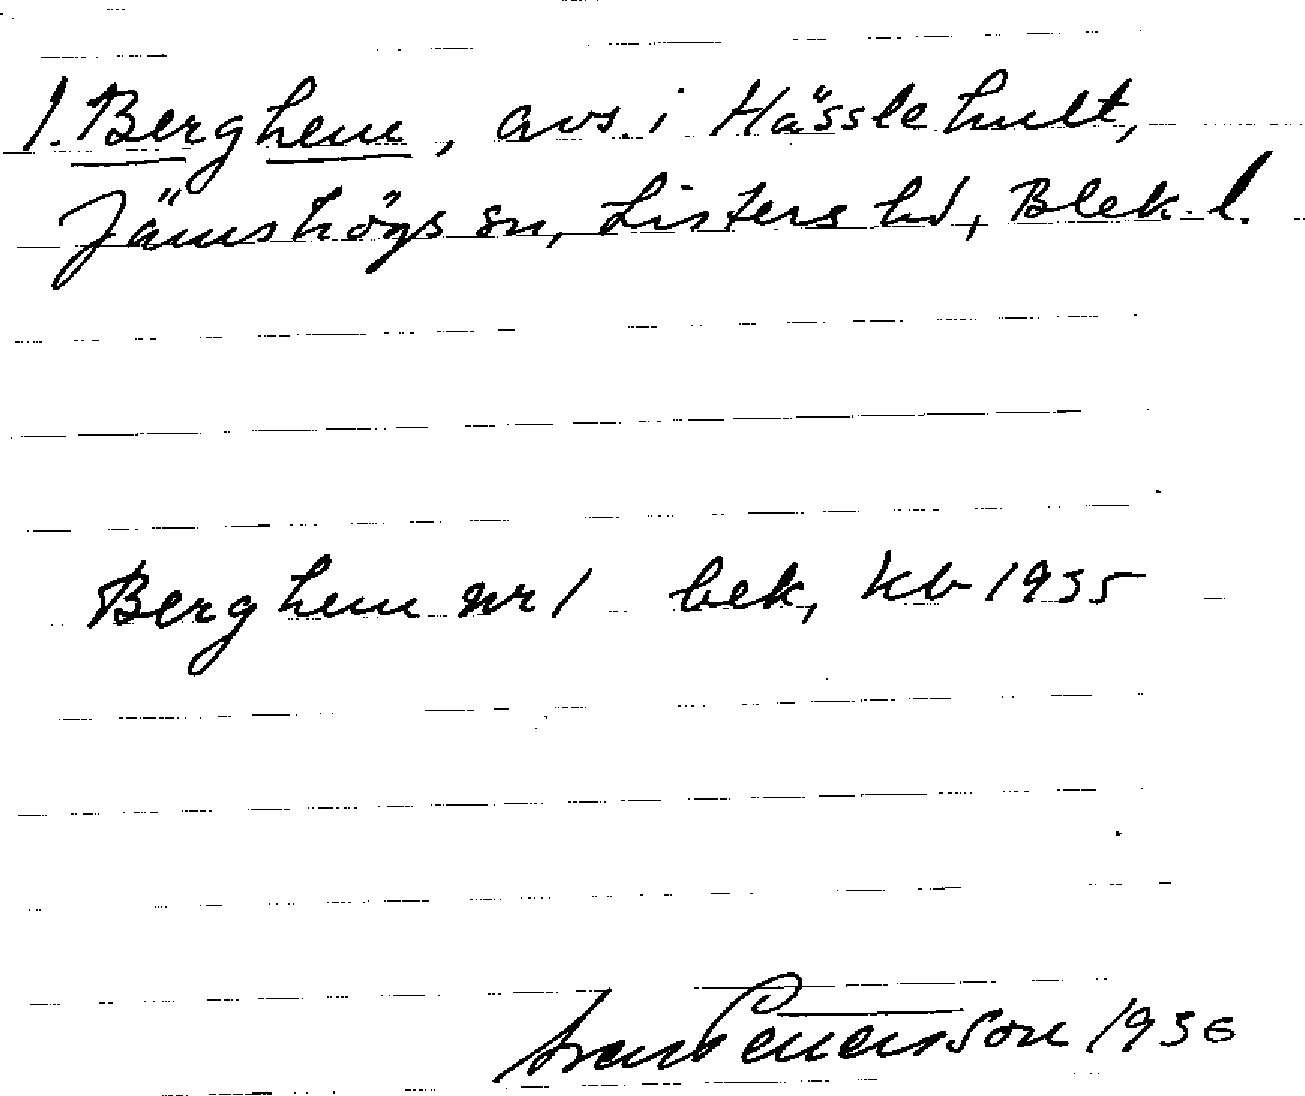 1. Berghem, avs. i Hässlehult,
Jämshögs sn, Listers hd, Blek. l.
Berghem nr 1 bek, kb 1935
Pettersson 1936